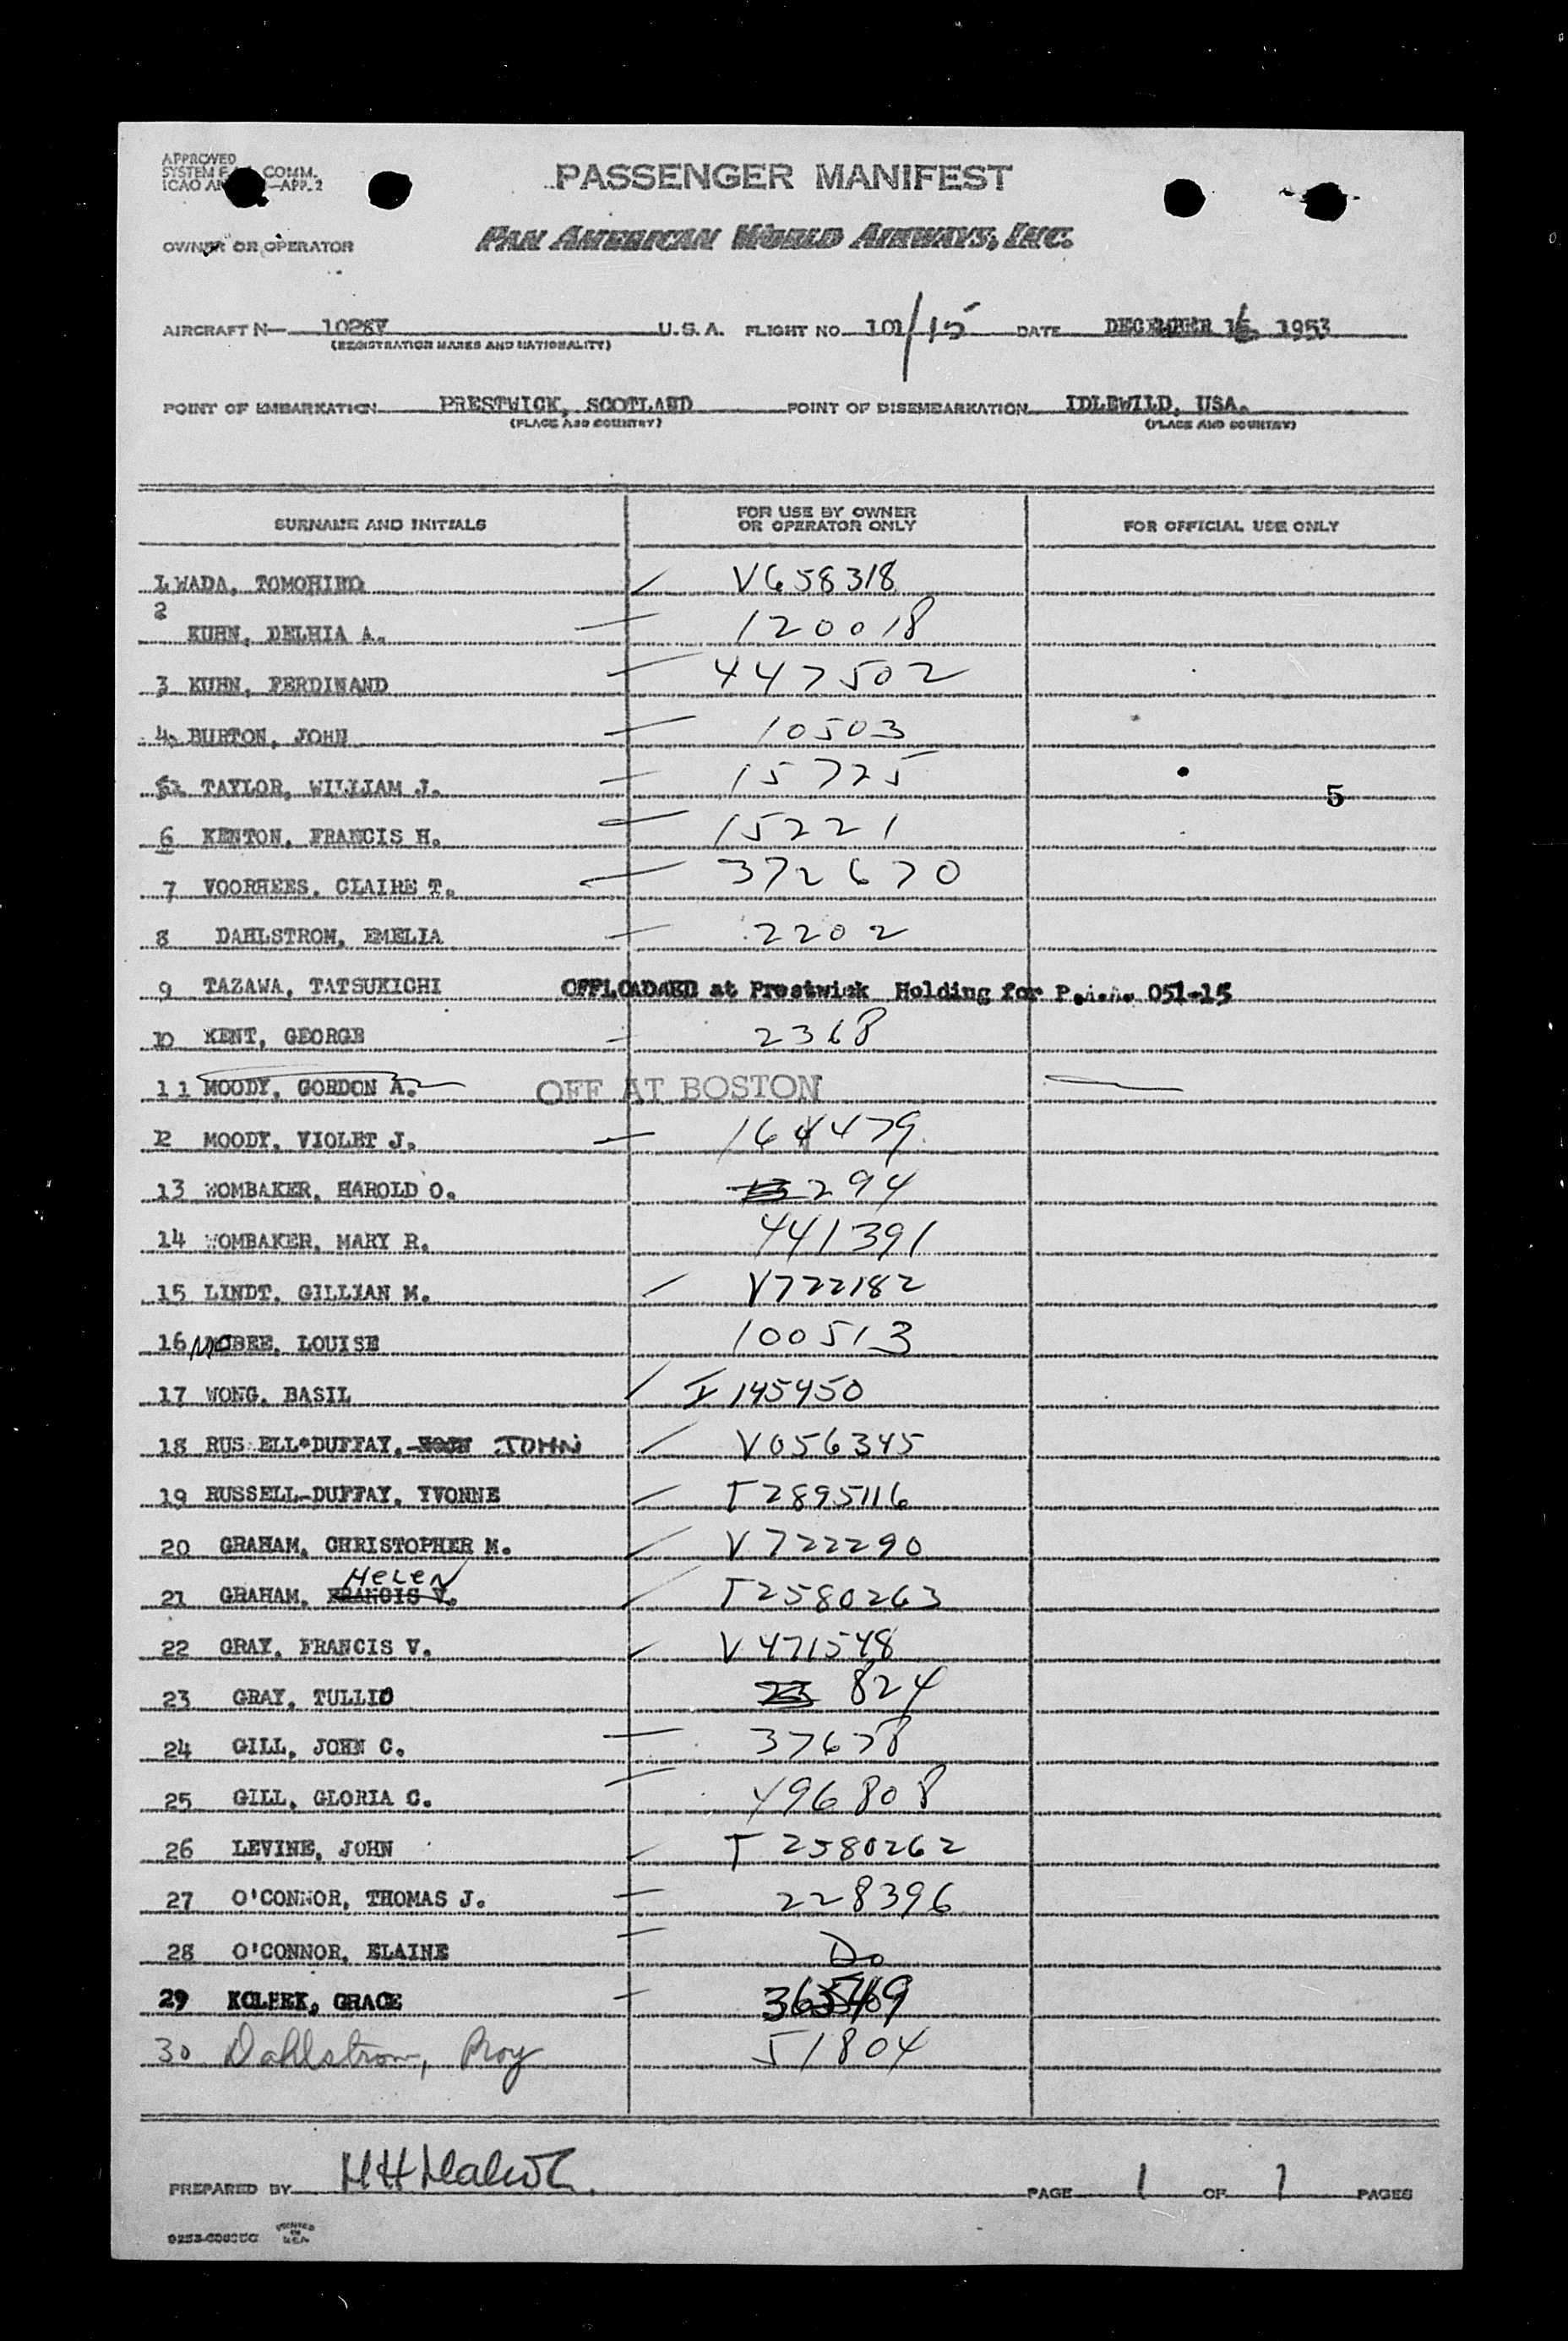 APPROVED
SYSTEM COMM.
ICAO AN -APP. 2
PASSENGER MANIFEST
OWNER OR OPERATOR
PAN AMERICAN WORLD AIRWAYS, INC.
AIRCRAFT N— 1028V U.S.A. FLIGHT NO. 101/15 DATE DECEMBER 16 1953
(REGISTRATION MARKS AND NATIONALITY)
POINT OF EMBARKATION PRESTWICK, SCOTLAND POINT OF DISEMBARKATION IDLEWILD, USA.
(PLACE AND COUNTRY) (PLACE AND COUNTRY)
SURNAME AND INITIALS FOR USE BY OWNER OR OPERATOR ONLY FOR OFFICIAL USE ONLY
1 WADA, TOMOHIRO V658318
2 KUHN, DELHIA A. 120018
3 KUHN, FERDINAND 447502
4 BURTON, JOHN 10503
5 TAYLOR, WILLIAM J. 15725 5
6 KENTON, FRANCIS H. 15221
7 VOORHEES, CLAIRE T. 372670
8 DAHLSTROM, EMELIA 2202
9 TAZAWA, TATSUKICHI OFFLOADAED at Prestwick Holding for P.A.A. 051-15
10 KENT, GEORGE 2368
11 MOODY, GORDON A. OFF AT BOSTON
12 MOODY, VIOLET J. 164479
13 WOMBAKER, HAROLD O. 294
14 WOMBAKER, MARY R. 441391
15 LINDT, GILLIAN M. V722182
16 McBEE, LOUISE 100513
17 WONG, BASIL I 145450
18 RUS ELL-DUFFAY, JOHN V056345
19 RUSSELL-DUFFAY, YVONNE T2895116
20 GRAHAM, CHRISTOPHER M. V722290
21 GRAHAM, FRANCIS V. HELEN T2580263
22 GRAY, FRANCIS V. V471548
23 GRAY, TULLIO 23 824
24 GILL, JOHN C. 37678
25 GILL, GLORIA C. 496808
26 LEVINE, JOHN T 2580262
27 O'CONNOR, THOMAS J. 228396
28 O'CONNOR, ELAINE Do
29 KOLBEK, GRACE
30 Dahlstrom, Roy 51804
PREPARED BY PAGE 1 OF 1 PAGES
PRINTED IN U.S.A.